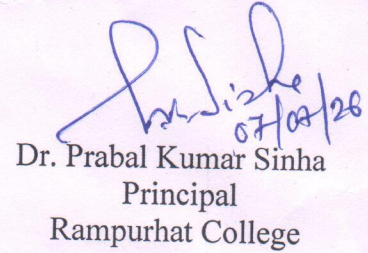 07/07/26
Dr. Prabal Kumar Sinha
Principal
Rampurhat College